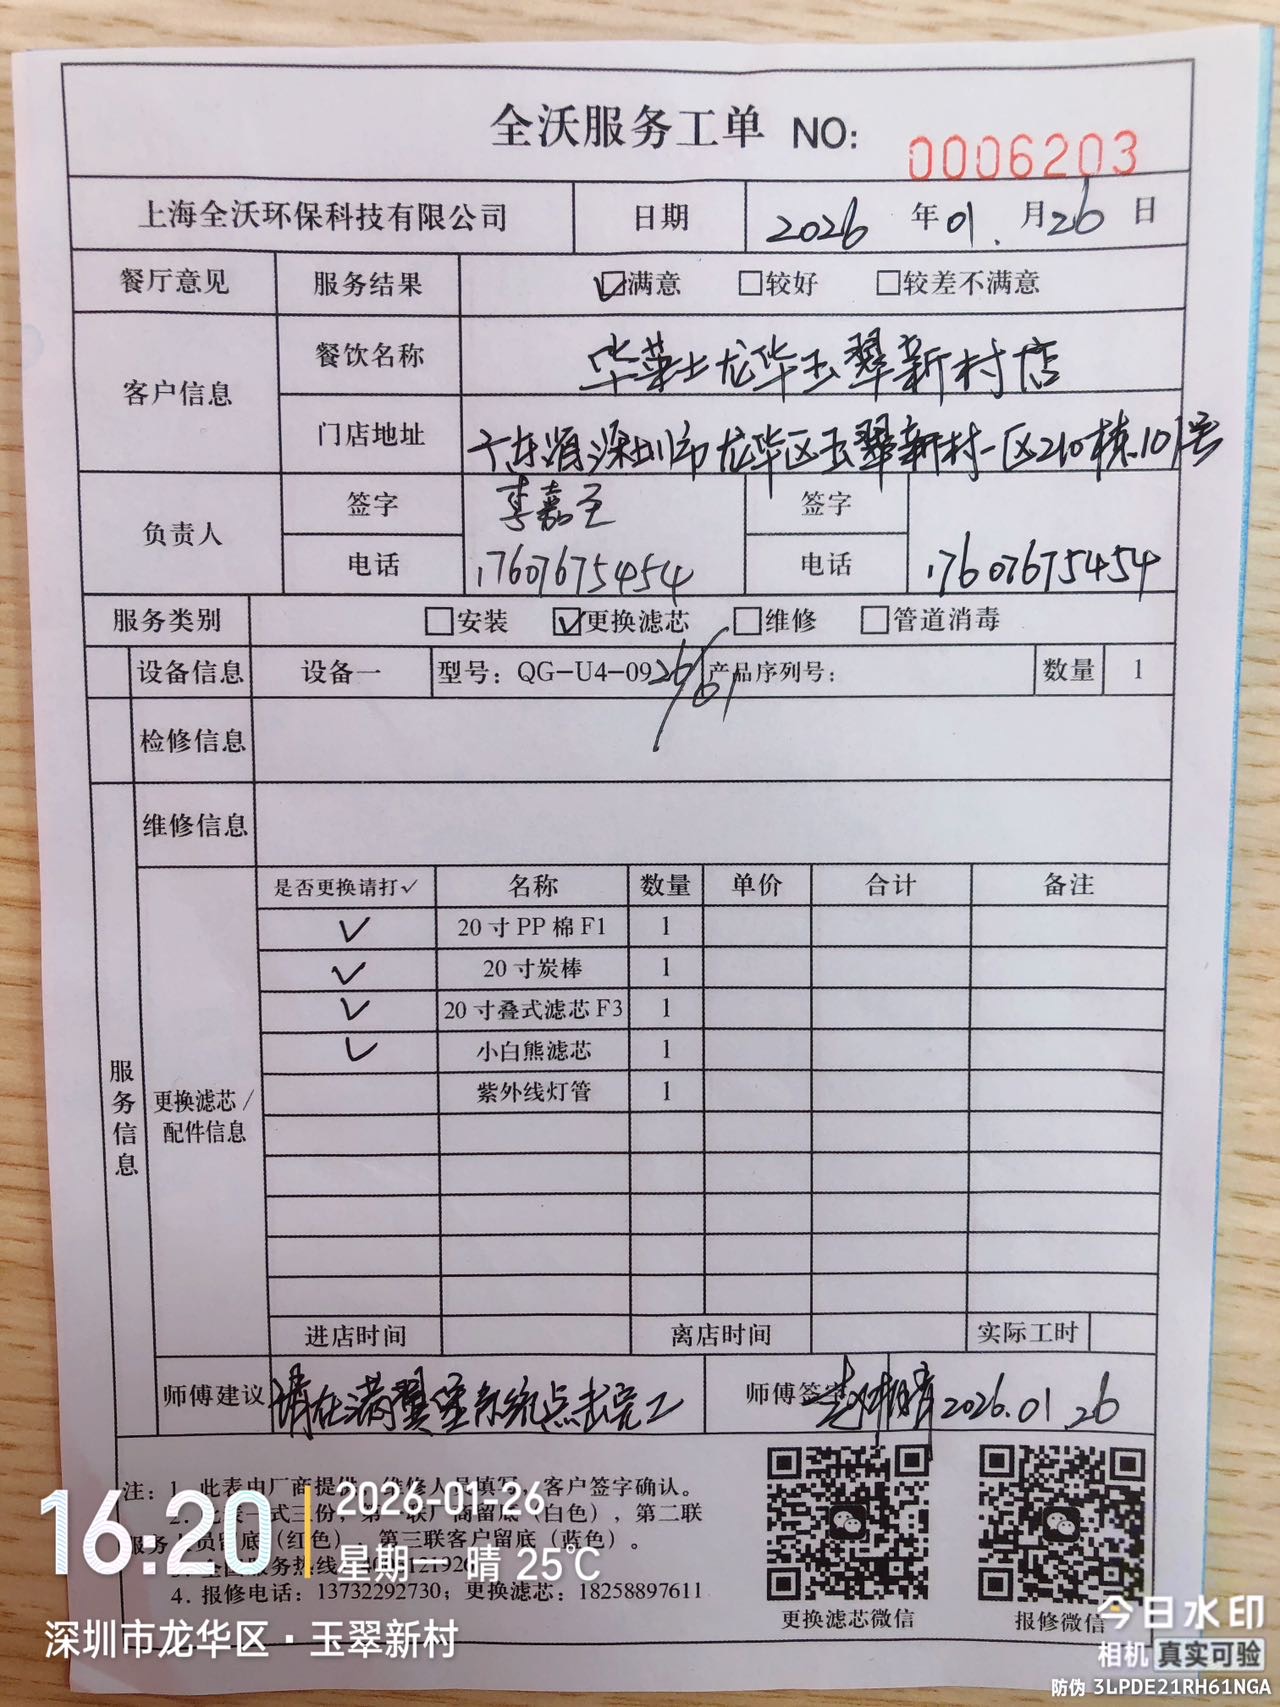 全沃服务工单 NO: 0006203
上海全沃环保科技有限公司 日期 2026 年 01. 月 26 日
餐厅意见 服务结果 ☑满意 □较好 □较差不满意
客户信息 餐饮名称 华莱士龙华玉翠新村店
门店地址 广东省深圳市龙华区玉翠新村一区210栋101号
负责人 签字 李嘉 签字
电话 17607675454 电话 17607675454
服务类别 □安装 ☑更换滤芯 □维修 □管道消毒
设备信息 设备一 型号：QG-U4-09 26/01 产品序列号： 数量 1
检修信息
维修信息
服务信息
更换滤芯/
配件信息
是否更换请打✓ 名称 数量 单价 合计 备注
✓ 20寸PP棉F1 1
✓ 20寸炭棒 1
✓ 20寸叠式滤芯F3 1
✓ 小白熊滤芯 1
紫外线灯管 1
进店时间 离店时间 实际工时
师傅建议 请在满翼堡系统点击完工 师傅签字 2026.01.26
注：1. 此表由厂商提供，维修人员填写，客户签字确认。
2. 此表一式三份，第一联厂商留底（白色），第二联
服务人员留底（红色），第三联客户留底（蓝色）。
全国服务热线
4. 报修电话：13732292730；更换滤芯：18258897611
更换滤芯微信 报修微信
16:20 2026-01-26
星期一 晴 25℃
深圳市龙华区·玉翠新村
今日水印
相机 真实可验
防伪 3LPDE21RH61NGA